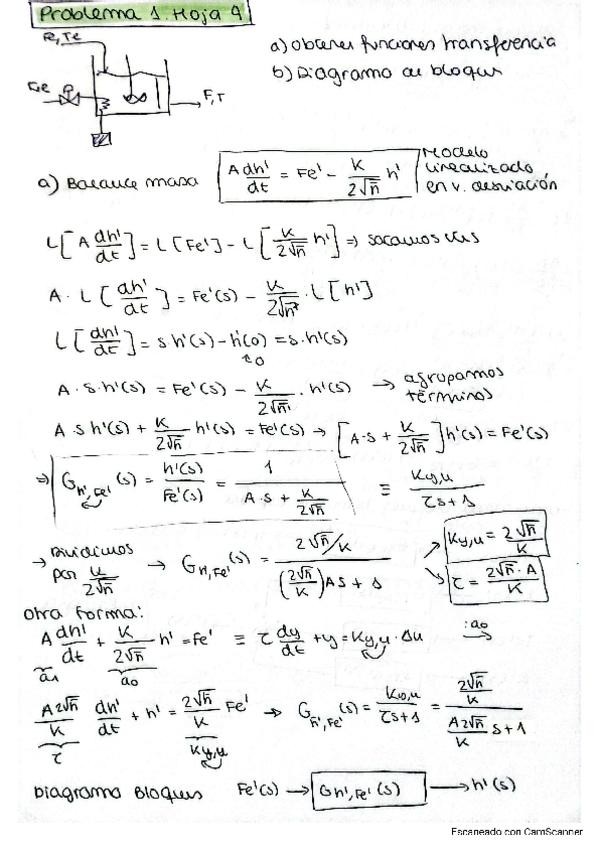 Problema 1. Hoja 4
Fe, Te
a) Obtener funciones transferencia
b) Diagrama de bloques
F, T
a) Balance masa A dh'/dt = Fe' - K/(2√h̄) h' Modelo linealizado en v. desviación
L[A dh'/dt] = L[Fe'] - L[K/(2√h̄) h'] ⇒ sacamos ctes
A · L[dh'/dt] = Fe'(s) - K/(2√h̄) · L[h']
L[dh'/dt] = s·h'(s) - h'(0) = s·h'(s)
A · s · h'(s) = Fe'(s) - K/(2√h̄) · h'(s) → agrupamos términos
A s h'(s) + K/(2√h̄) h'(s) = Fe'(s) → [A·s + K/(2√h̄)] h'(s) = Fe'(s)
⇒ G h',Fe' (s) = h'(s)/Fe'(s) = 1/(A·s + K/(2√h̄)) ≡ Ky,u/(τs+1)
→ Dividimos por K/(2√h̄) → G h,Fe' (s) = (2√h̄/K)/((2√h̄/K) A s + 1)
Ky,u = 2√h̄/K
τ = 2√h̄·A/K
Otra forma:
A dh'/dt + K/(2√h̄) h' = Fe' ≡ τ dy/dt + y = Ky,u · Δu :a0 →
a1 a0
A2√h̄/K dh'/dt + h' = 2√h̄/K Fe' → G h',Fe' (s) = Ky,u/(τs+1) = (2√h̄/K)/(A2√h̄/K s + 1)
τ Ky,u
Diagrama Bloques Fe'(s) → Gh',Fe'(s) → h'(s)
Escaneado con CamScanner